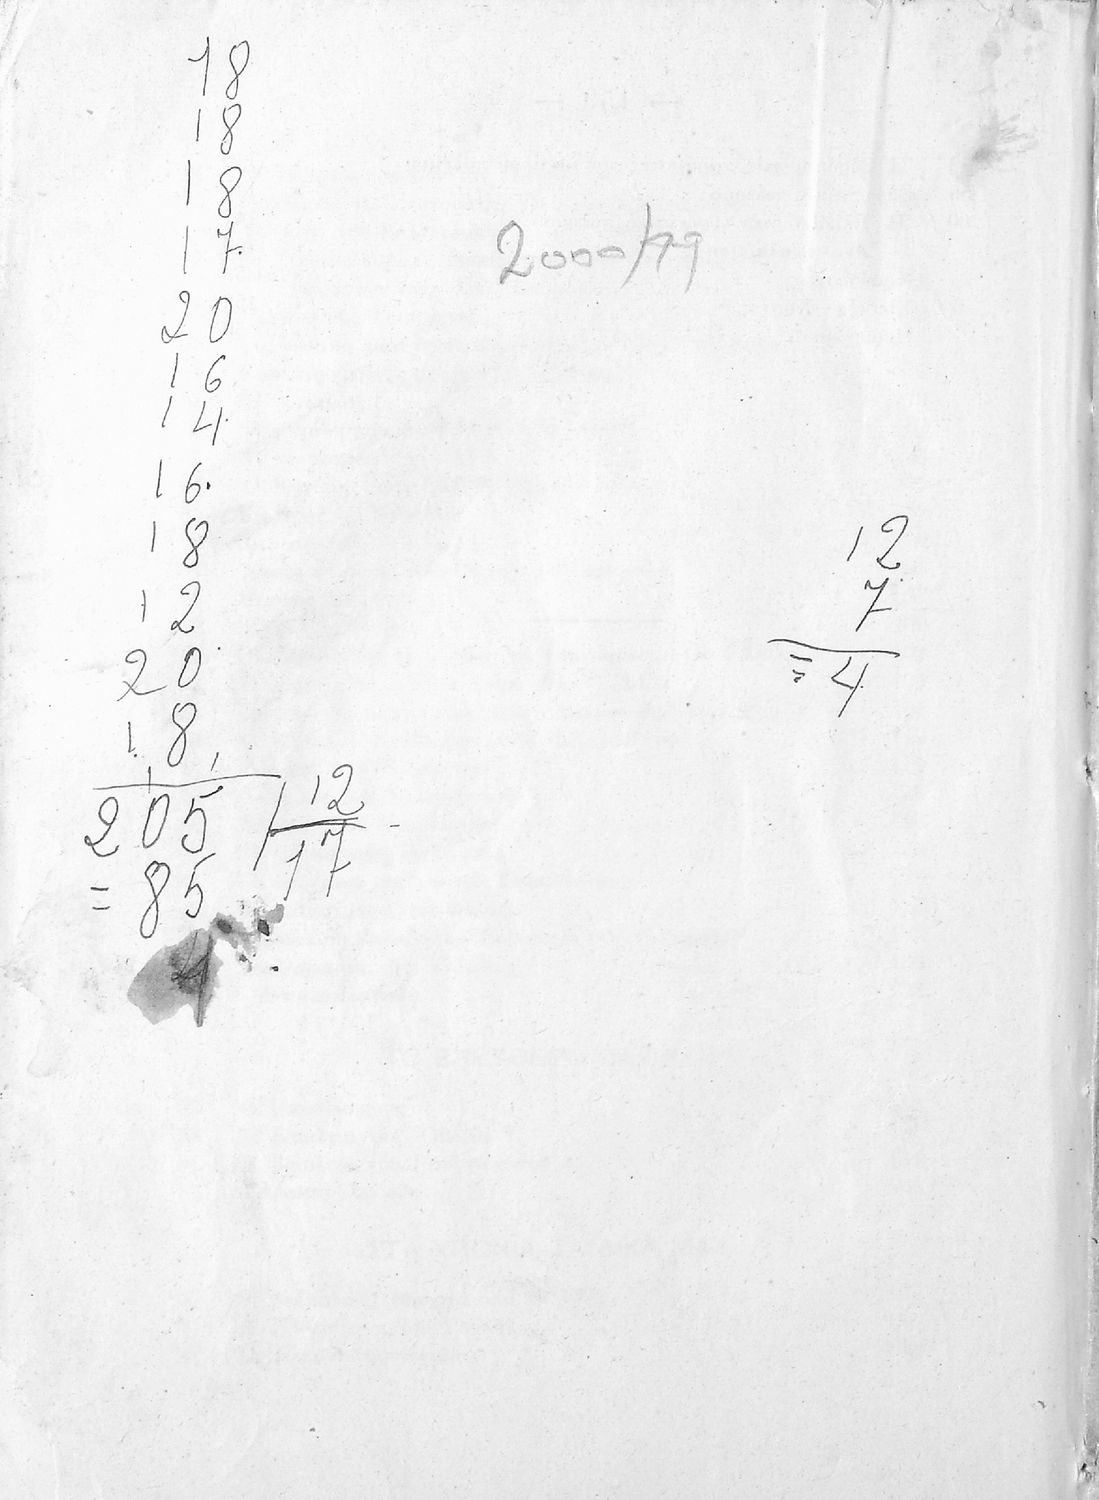 18
18
18
17
2000/79
20
16
14
16.
18
12
12
7
20
= 4
18
205 12
= 85 17
1